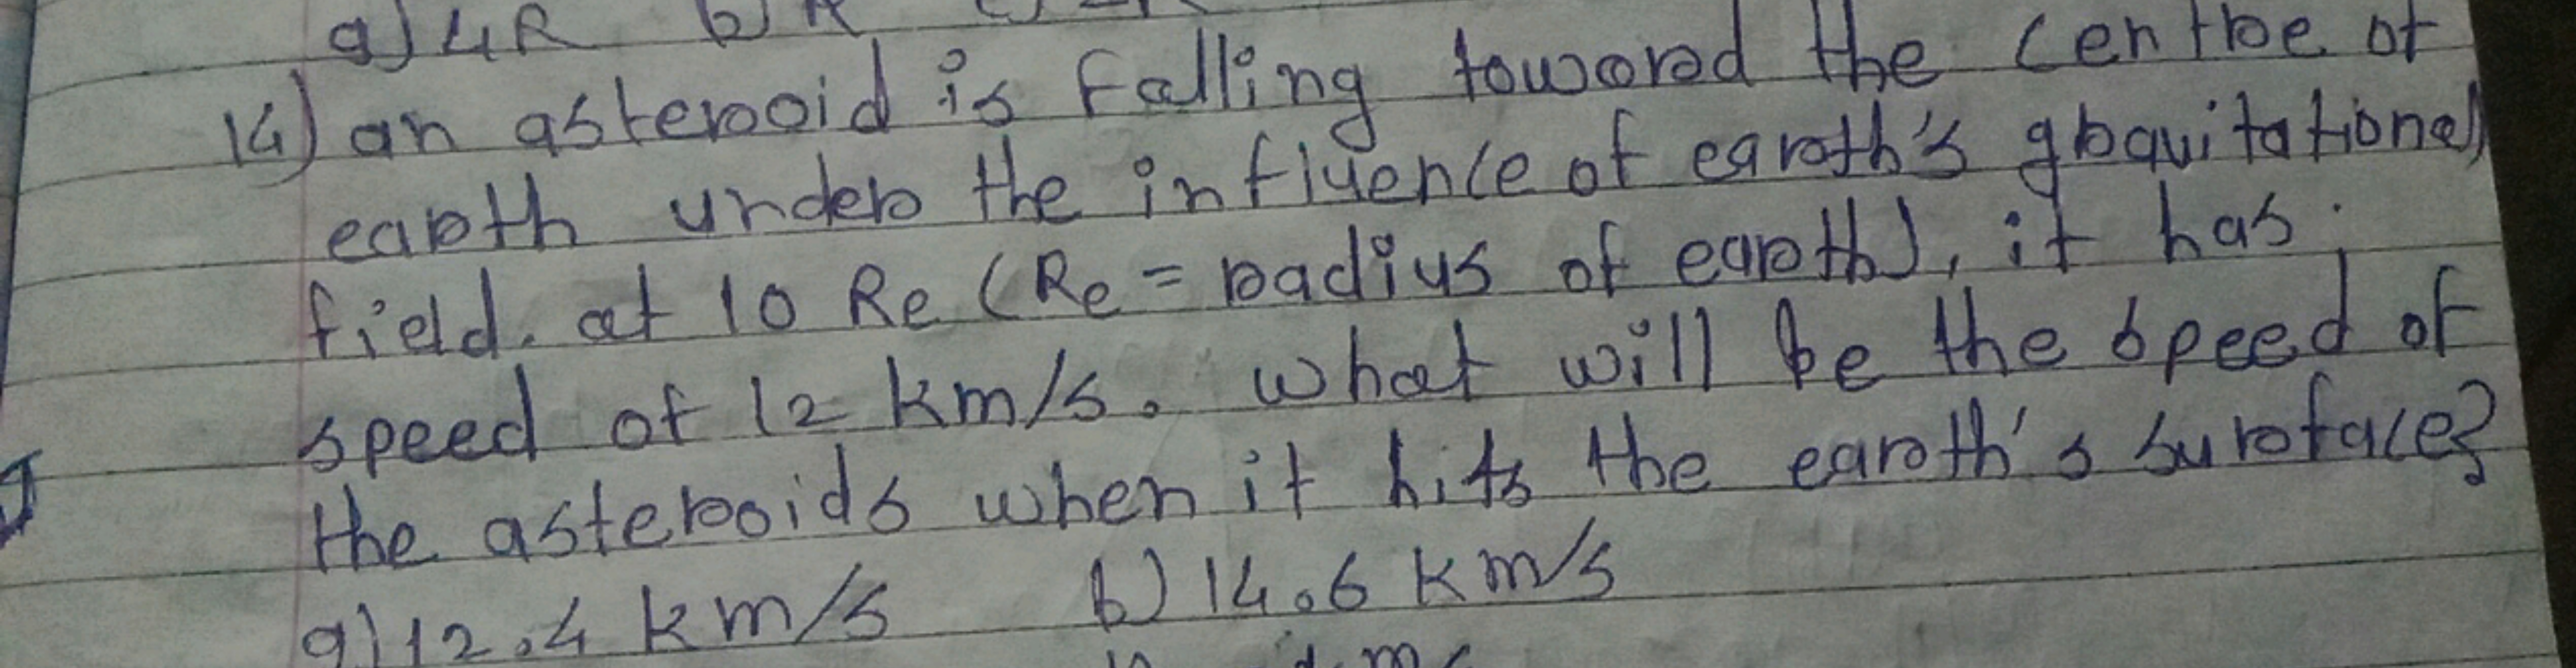 a) 4R b) R
14) an asteroid is falling toward the centre of
earth under the influence of earth's gravitational
field. at 10 Re (Re = radius of earth), it has
speed of 12 km/s. what will be the speed of
the asteroids when it hits the earth's surface?
a) 12.4 km/s b) 14.6 km/s